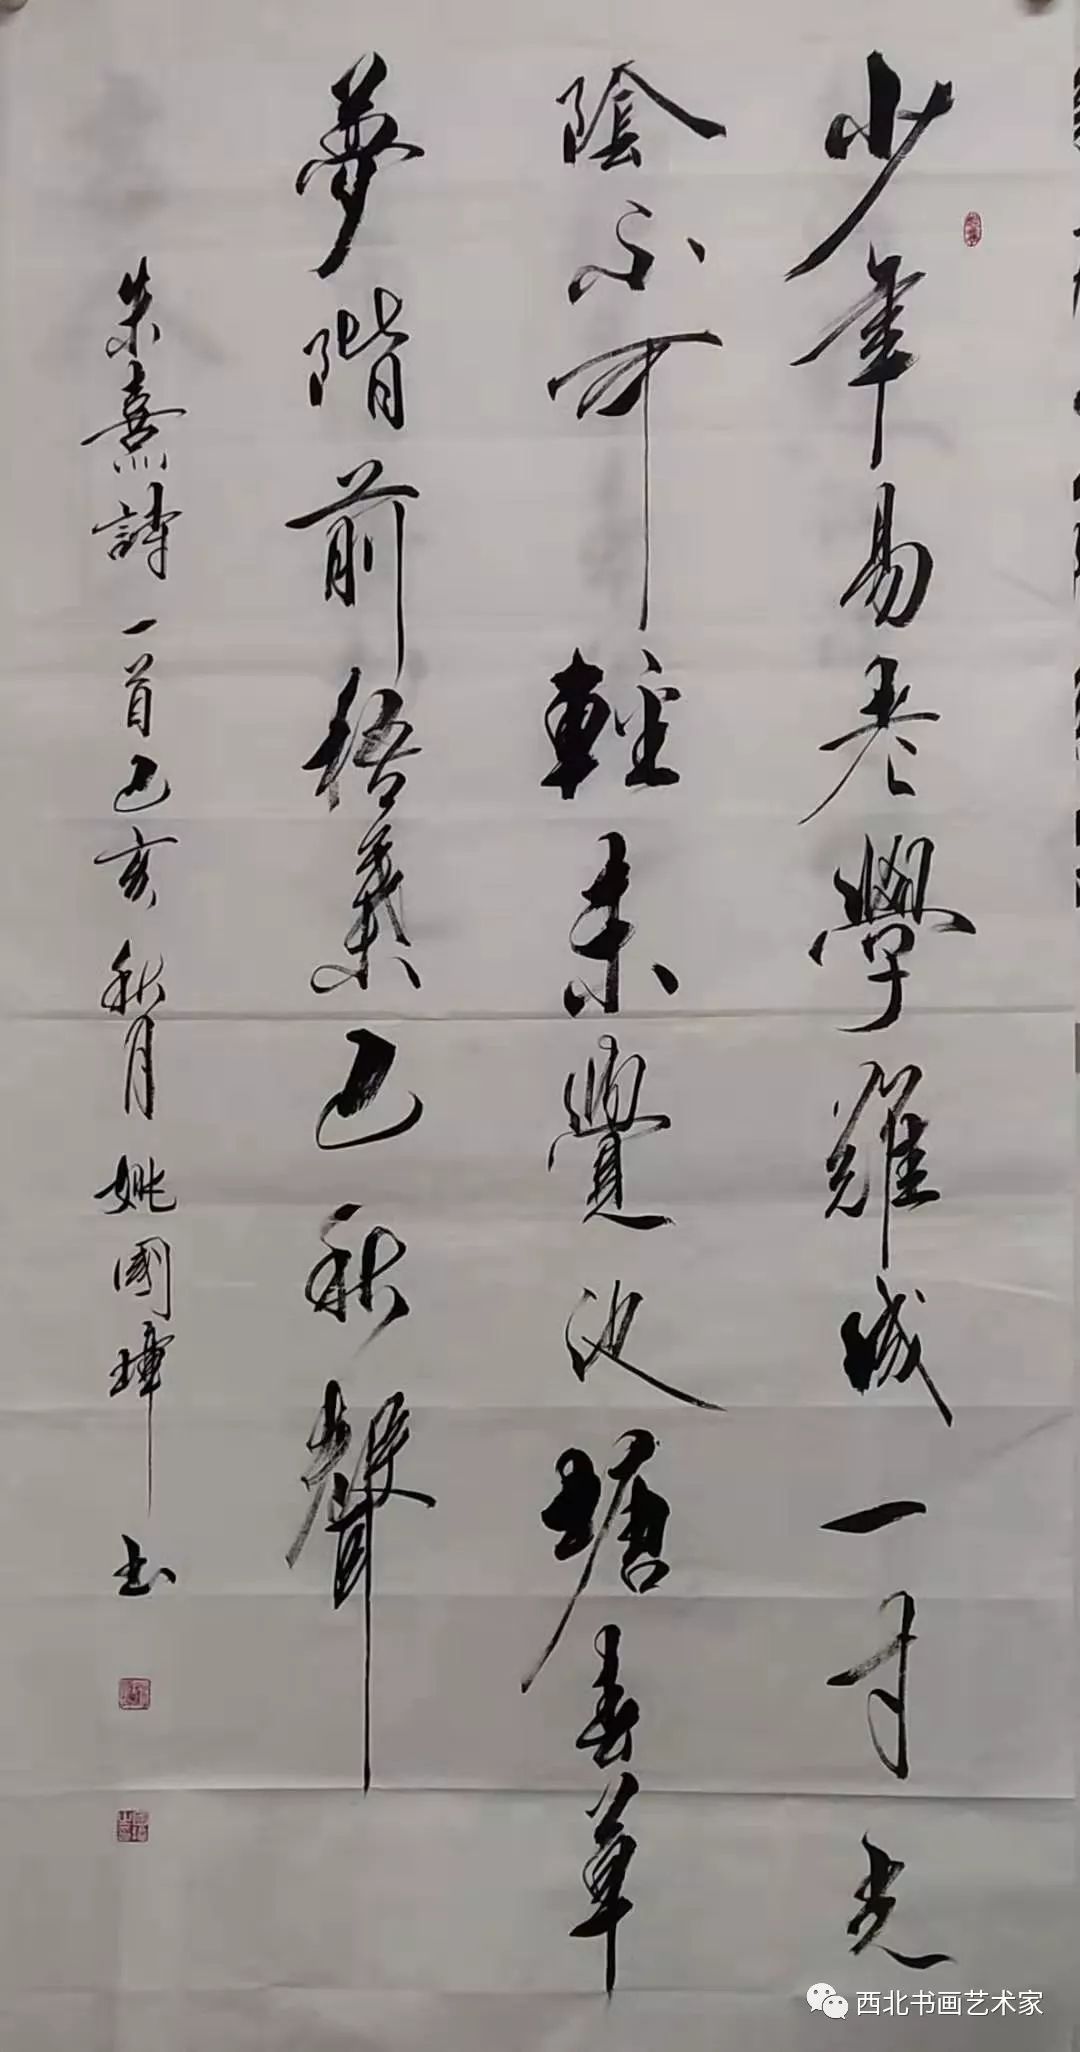 少年易老學難成一寸光
陰不可輕未覺池塘春草
夢階前梧葉已秋聲
朱熹詩一首己亥秋月姚國瑋书
西北书画艺术家